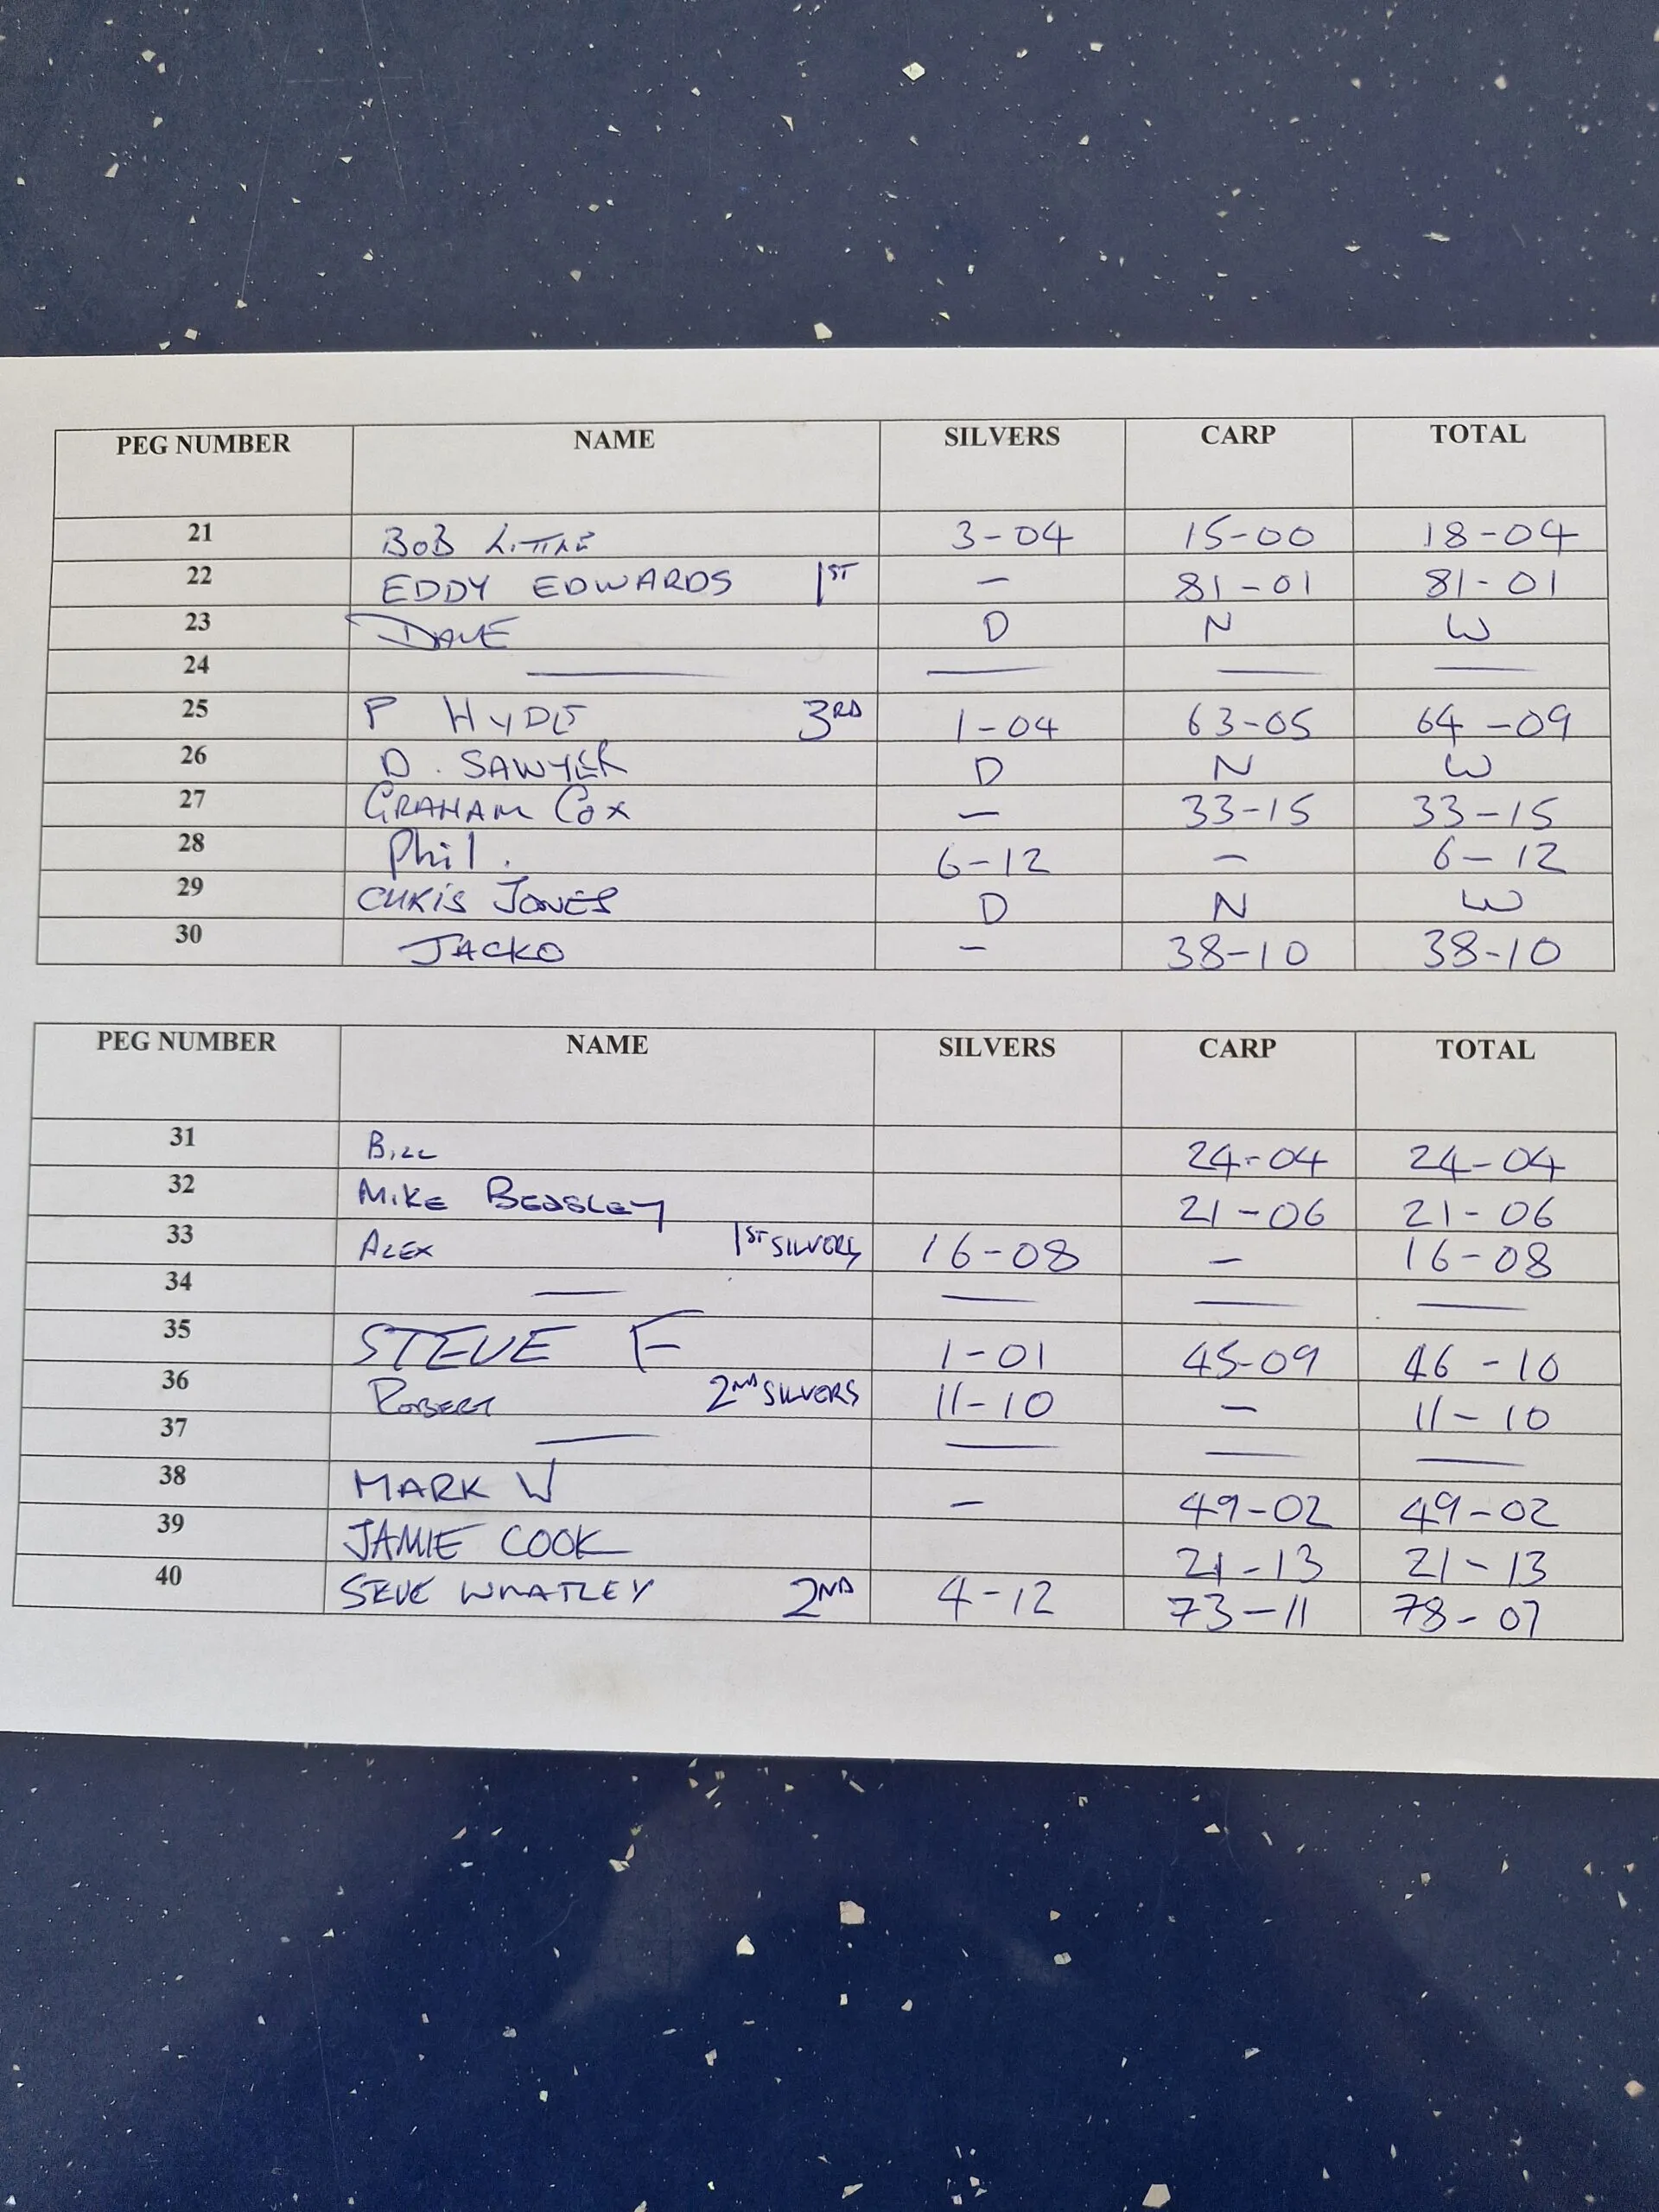 PEG NUMBER NAME SILVERS CARP TOTAL
21 BOB LITTLE 3-04 15-00 18-04
22 EDDY EDWARDS 1ST - 81-01 81-01
23 DAVE D N W
24 — — — —
25 P HYDE 3RD 1-04 63-05 64-09
26 D. SAWYER D N W
27 GRAHAM COX - 33-15 33-15
28 Phil. 6-12 - 6-12
29 CHRIS JONES D N W
30 JACKO - 38-10 38-10
PEG NUMBER NAME SILVERS CARP TOTAL
31 BILL 24-04 24-04
32 MIKE BEASLEY 21-06 21-06
33 ALEX 1ST SILVERS 16-08 - 16-08
34 — — — —
35 STEVE F 1-01 45-09 46-10
36 ROBERT 2ND SILVERS 11-10 - 11-10
37 — — — —
38 MARK W - 49-02 49-02
39 JAMIE COOK 21-13 21-13
40 STEVE WHATLEY 2ND 4-12 73-11 78-07